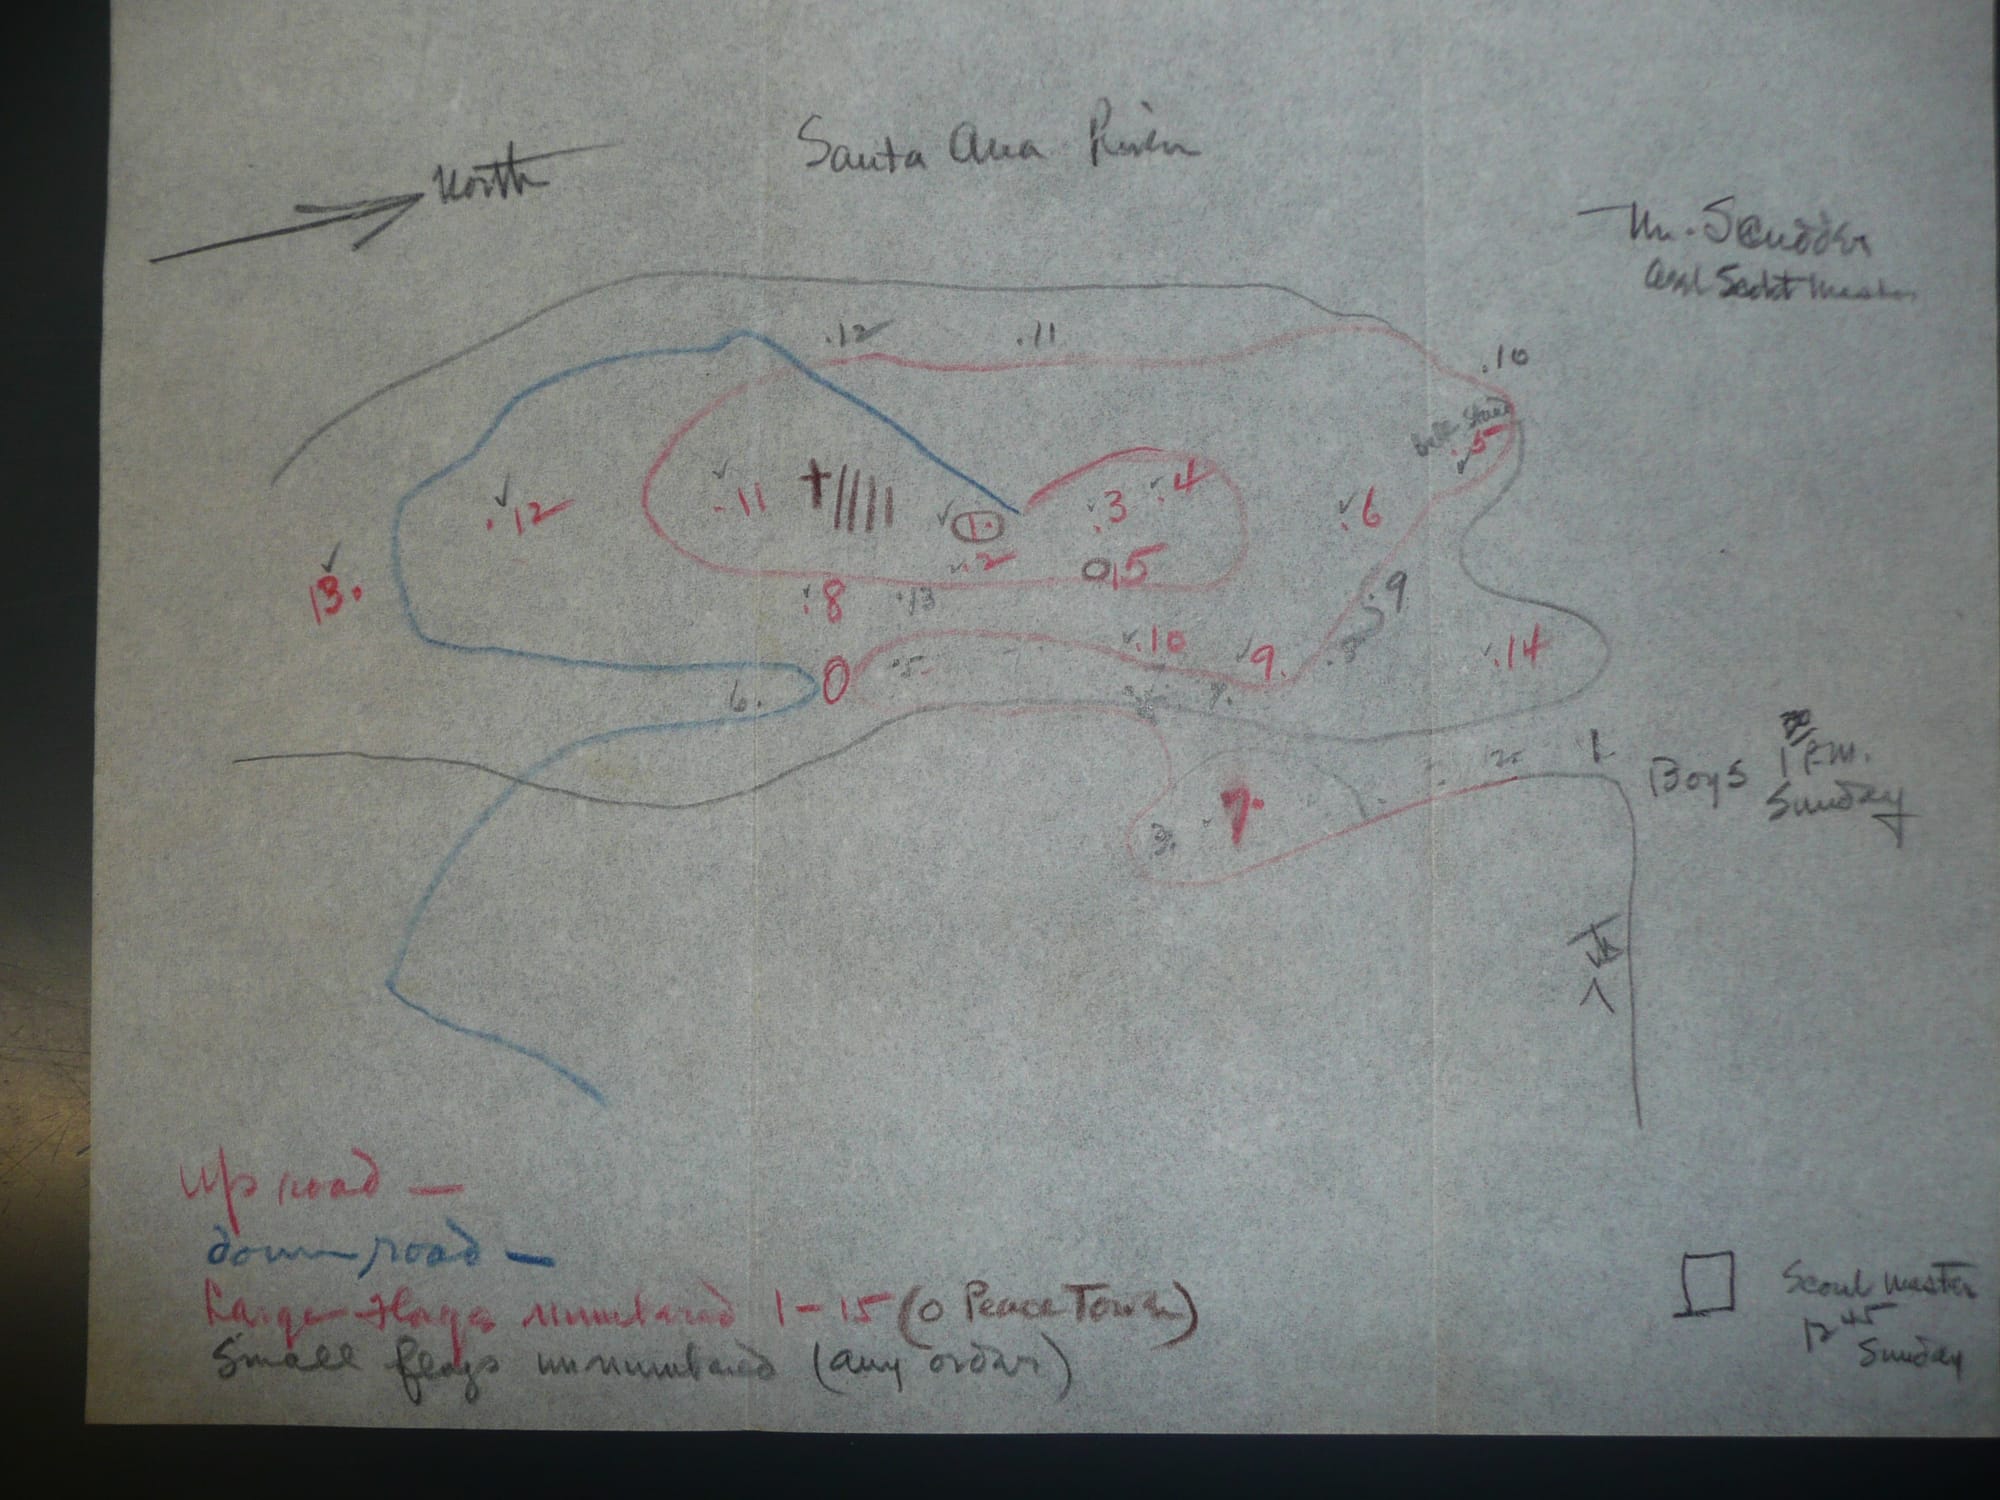 Santa Ana River
North
Mr. Scudder
.12
.11
.10
5
.12
.11
1.
.3
.4
.6
.2
15
13.
:8
.13
.9
.10
9.
.8
.14
0
.5
6.
7.
1
2.
Boys 1 P.M.
Sunday
3.
7.
up road —
down road —
Large flags numbered 1-15 (o Peace Tower)
Small flags unnumbered (any order)
Scout master
12 45
Sunday